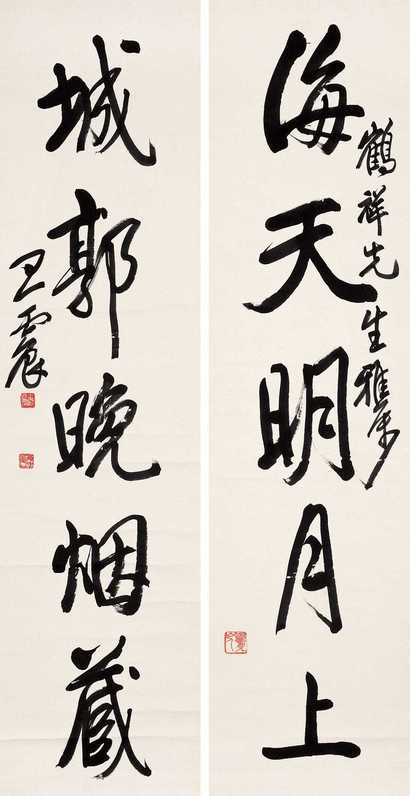 海天明月上
鶴祥先生雅屬
城郭晚烟藏
王震